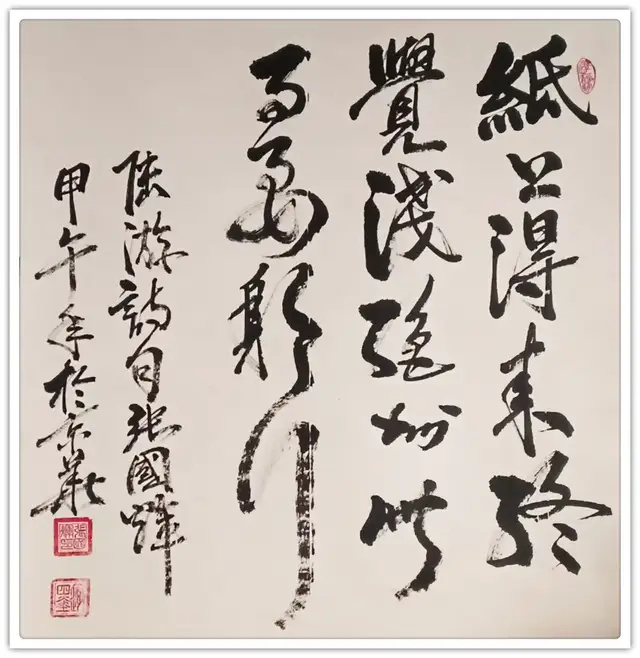 紙上得来終
覺淺絶知此
事要躬行
陸游詩句張國輝
甲午年於京華